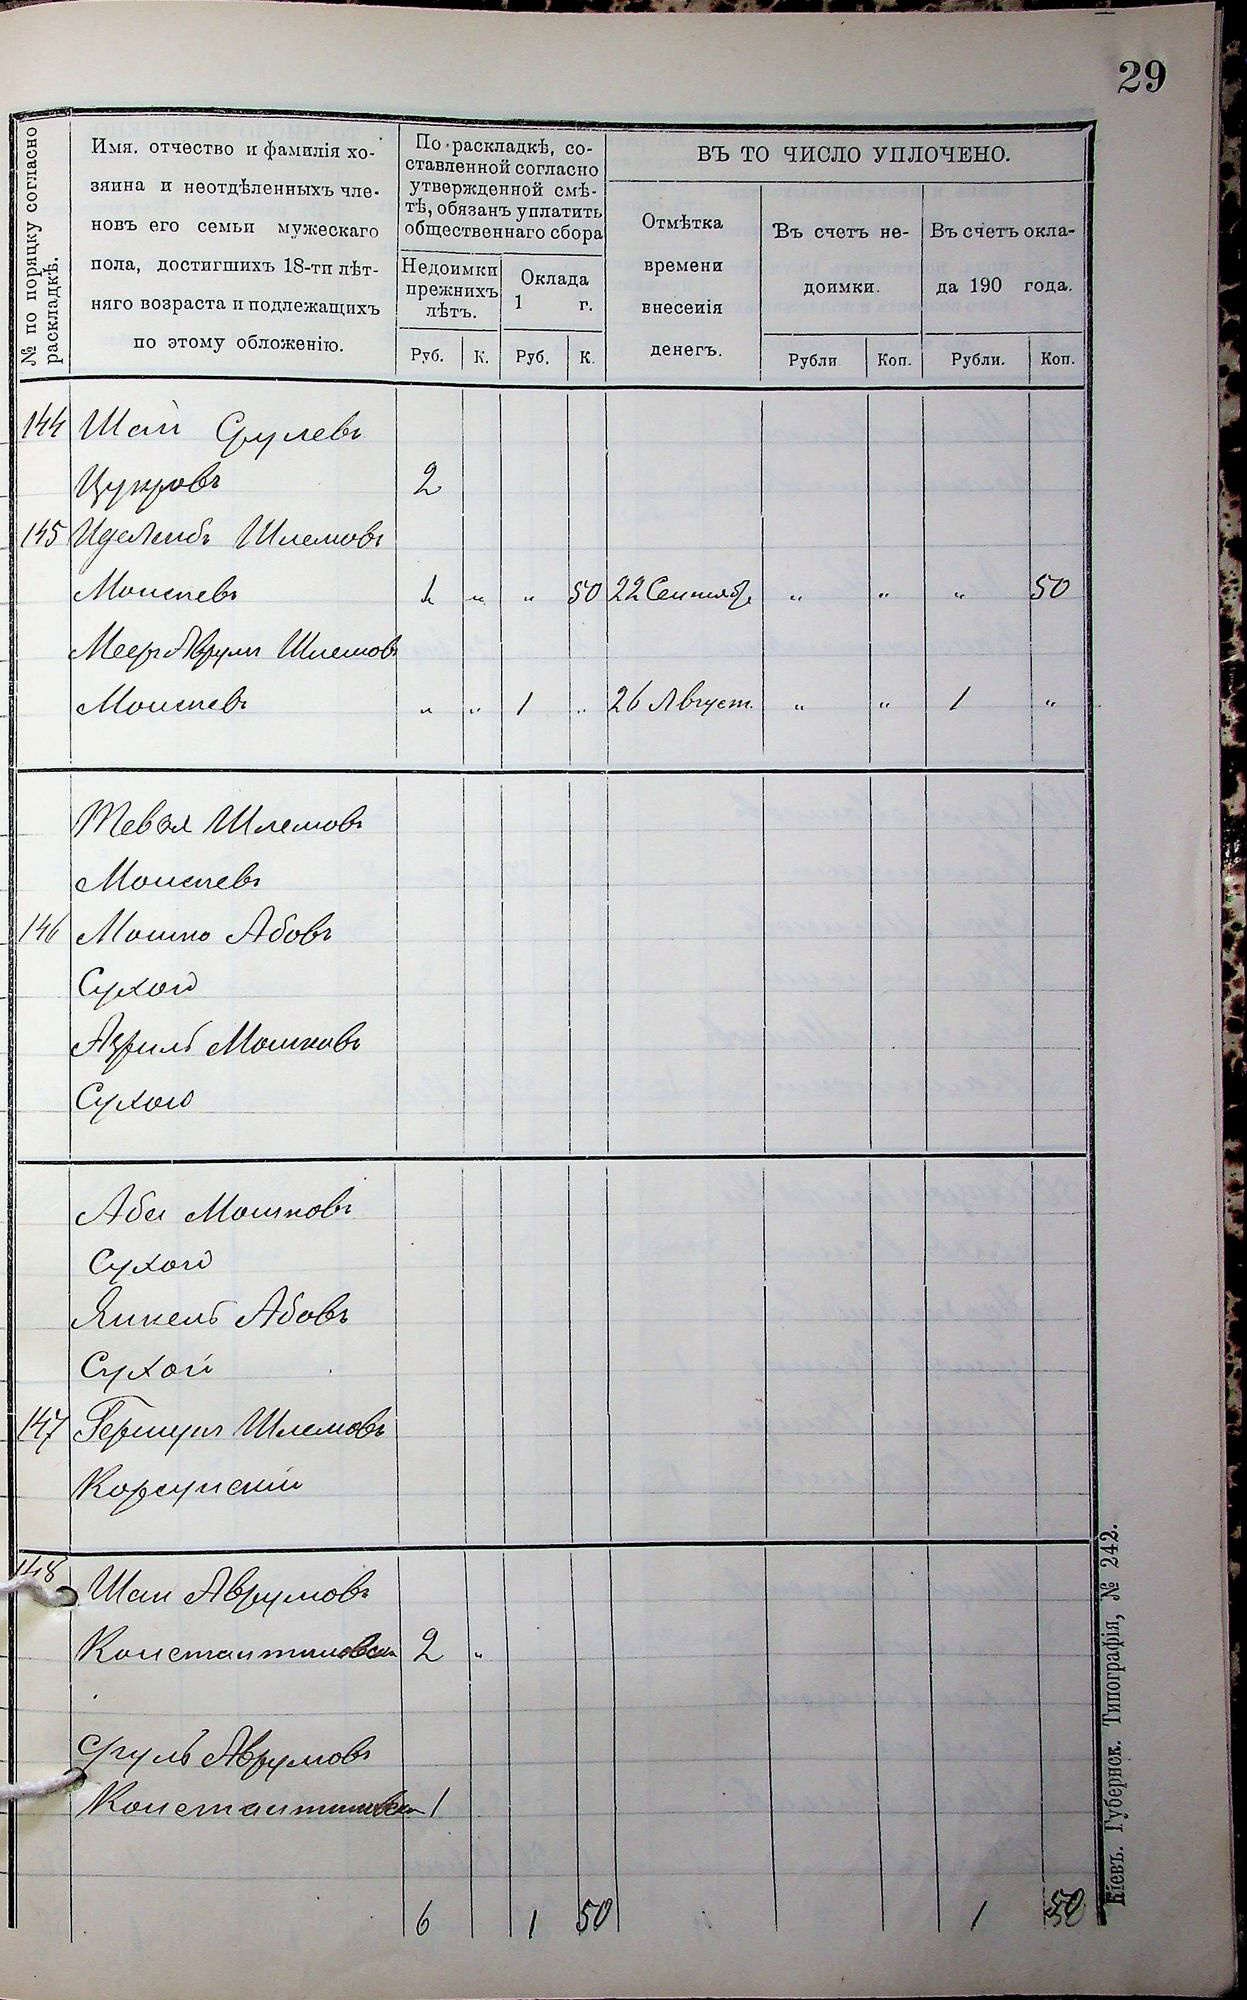 29
№ по поряцку согласно
раскладкѣ.
Имя. отчество и фамилія хо-
зяина и неотдѣленныхъ чле-
новъ его семьи мужескаго
пола, достигшихъ 18-ти лѣт-
няго возраста и подлежащихъ
по этому обложенію.
По раскладкѣ, со-
ставленной согласно
утвержденной смѣ-
тѣ, обязанъ уплатить
общественнаго сбора
Недоимки
прежнихъ
лѣтъ.
Оклада
1 г.
Руб. К. Руб. К.
ВЪ ТО ЧИСЛО УПЛОЧЕНО.
Отмѣтка
времени
внесенія
денегъ.
Въ счетъ не-
доимки.
Рубли Коп.
Въ счетъ окла-
да 190 года.
Рубли. Коп.
144 Шай Срулевъ
Цукровъ 2
145 Иделейбъ Шлемовъ
Моисеевъ 1 „ „ 50 22 Сентяб. „ „ „ 50
Меер Аврум Шлемовъ
Моисеевъ „ „ 1 „ 26 Август. „ „ 1 „
Тевел Шлемовъ
Моисеевъ
146 Мошко Абовъ
Сухой
Азриль Мошковъ
Сухой
Аба Мошковъ
Сухой
Янкель Абовъ
Сухой
147 Гершун Шлемовъ
Корсунский
148
Шаи Аврумовъ
Константиновски 2 „
Сруль Аврумовъ
Константиновски 1
6 1 50 1 50
Кіевъ. Губернск. Типографія, № 242.